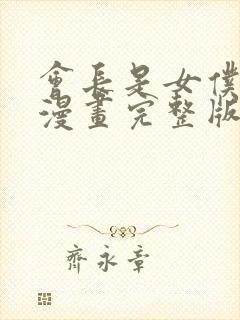 會長是女僕
漫畫完整版
齊永章